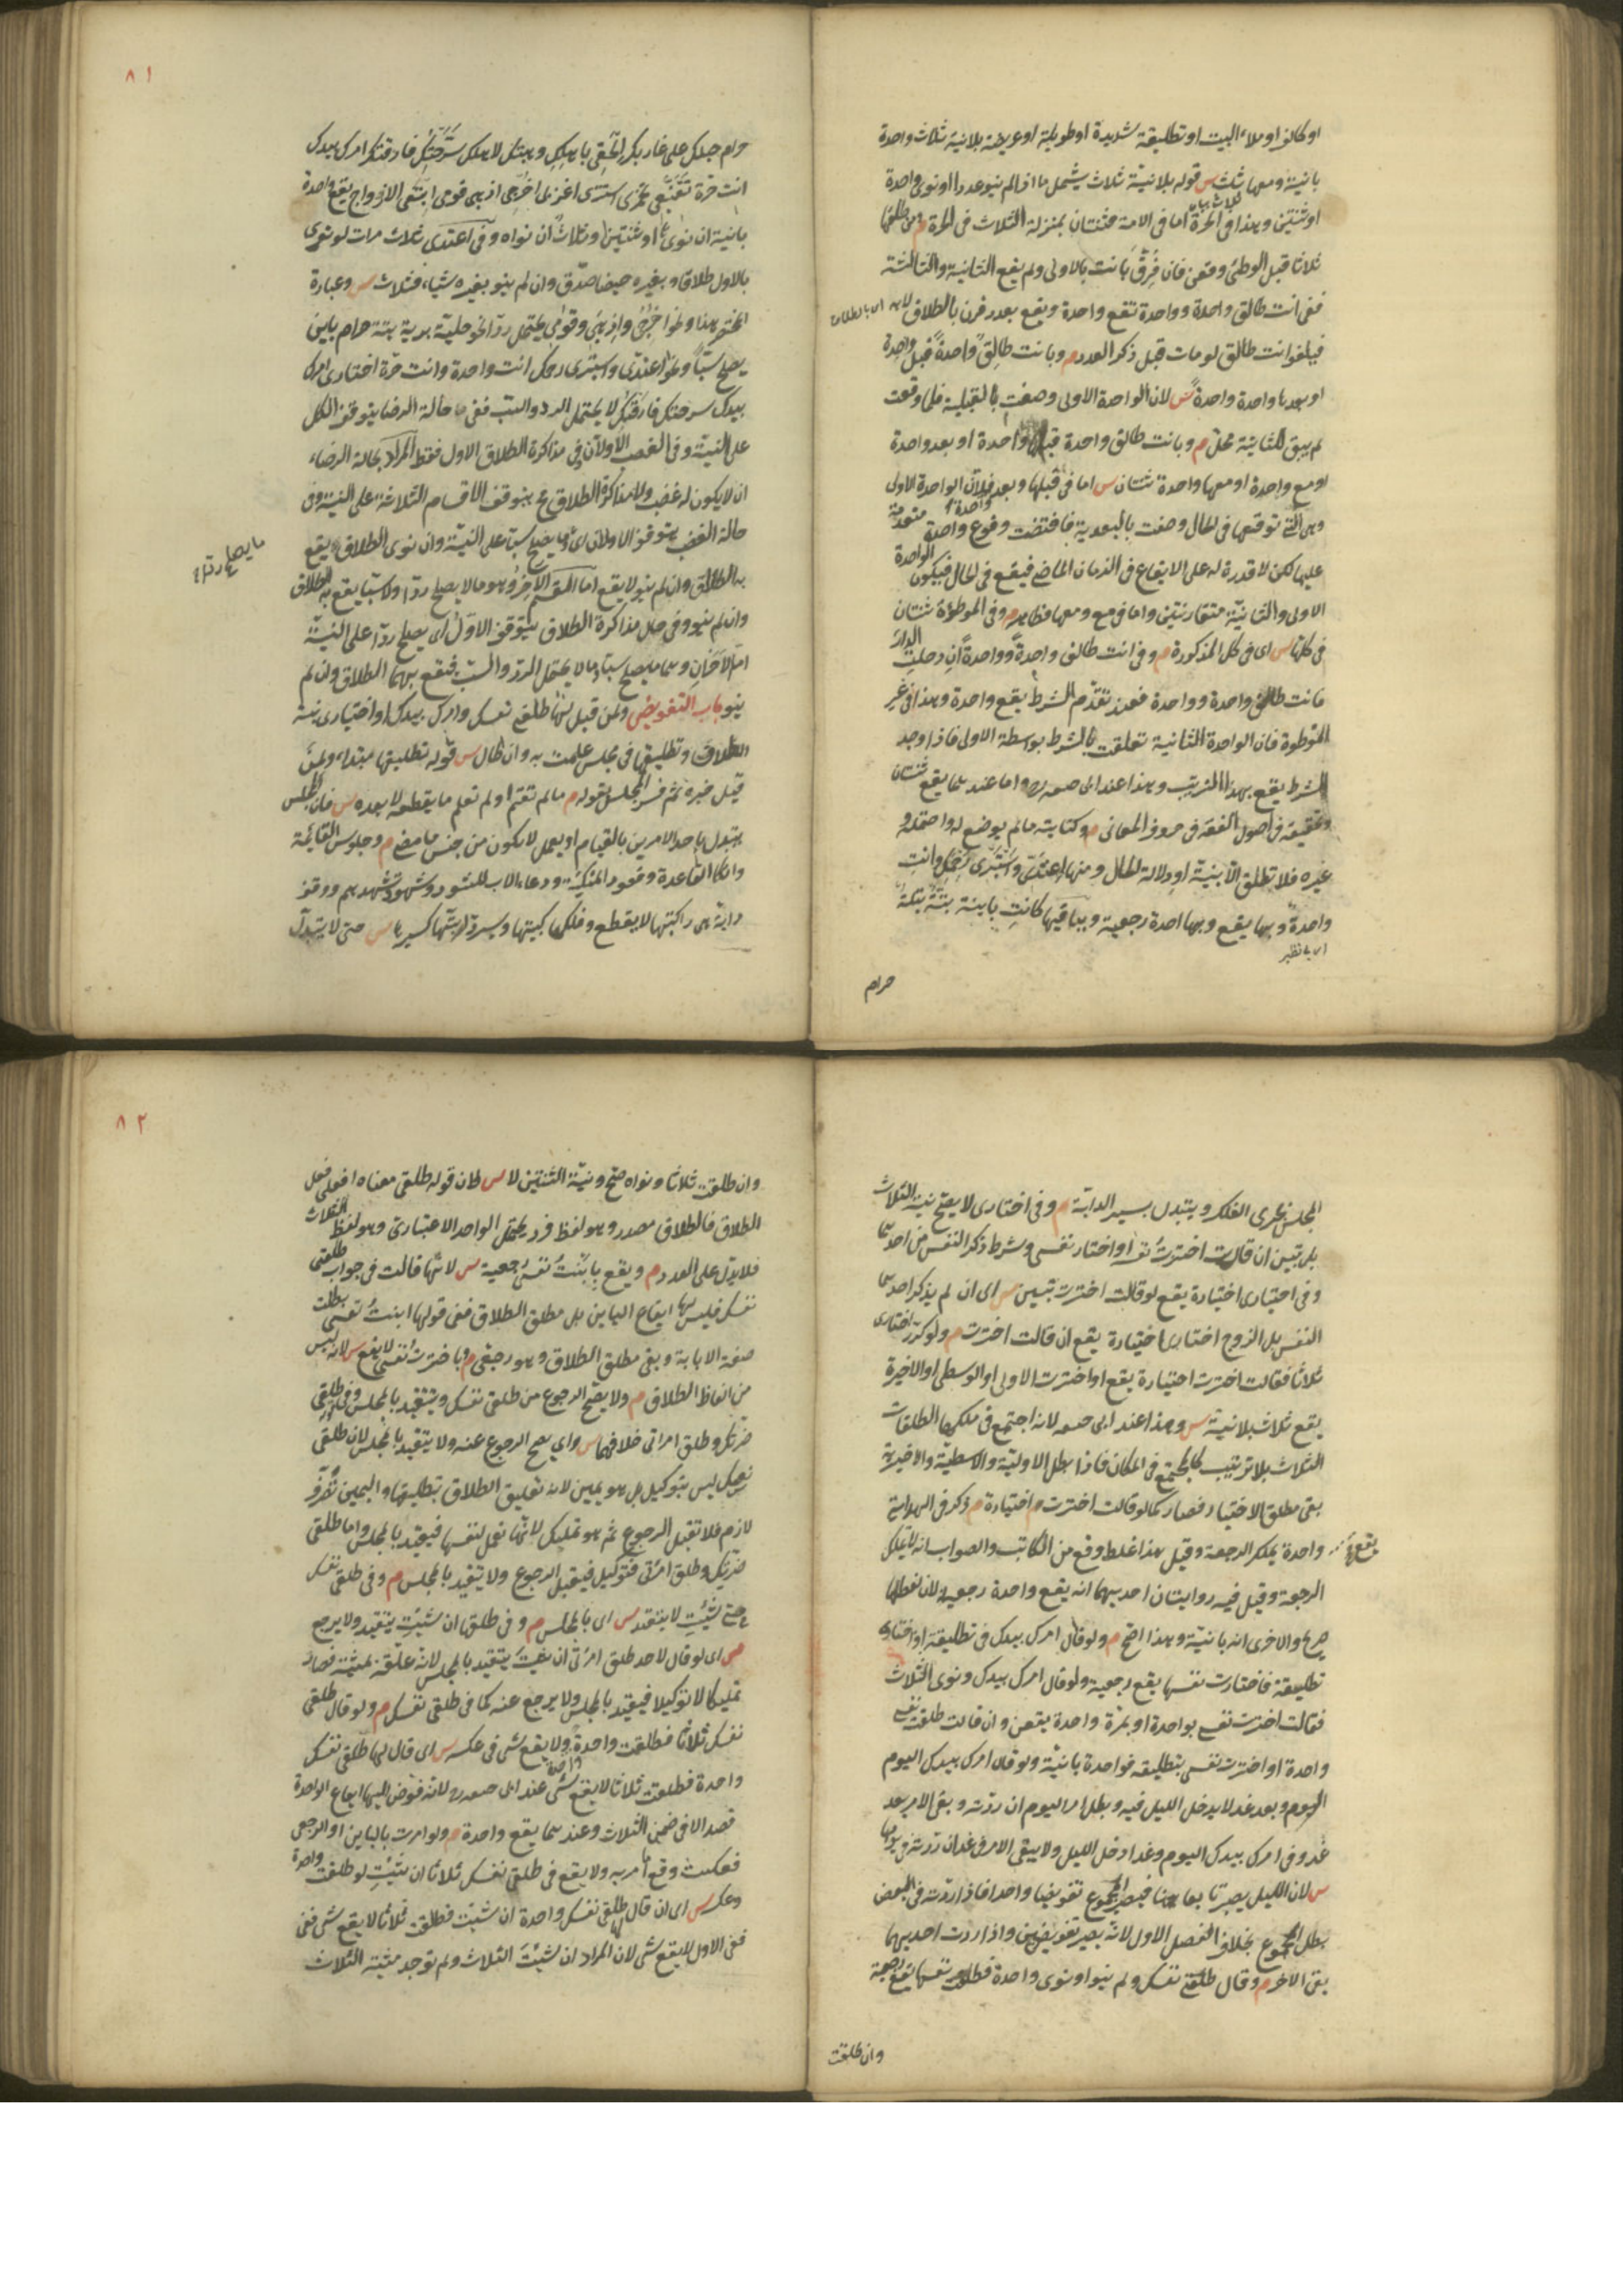 او كالف او ملء البيت او تطليقة شديدة او طويلة او عريضة بلا نية ثلاث واحدة
بائنة ومعها ثلث س قوله بلا نية ثلاث يشمل ما اذا لم ينو عددا او نوى واحدة
او ثنتين وهذا في الحرة اما في الامة فثنتان بمنزلة الثلاث في الحرة م ومن طلقها
ثلاثا قبل الوطئ وقعن فان فرق بانت بالاولى ولم يقع الثانية والثالثة
ففي انت طالق واحدة وواحدة تقع واحدة ويقع بعدد قرن بالطلاق لا به اى بالطلاق
فيلغو انت طالق لو مات قبل ذكر العدد م وبانت طالق واحدة قبل واحدة
او بعدها واحدة واحدة س لان الواحدة الاولى وصفت بالقبلية فلما وقعت
لم يبق للثانية محل م وبانت طالق واحدة قبلها واحدة او بعد واحدة
او مع واحدة او معها واحدة ثنتان س اما في قبلها وبعد فلان الواحدة الاولى
وهى التى توقعها في الحال وصفت بالبعدية فاقتضت وقوع واحدة متقدمة
عليها لكن لا قدرة له على الايقاع في الزمان الماضى فيقع في الحال فيكون الواحدة
الاولى والثانية متقارنتين واما في مع ومعها فظاهر م وفى الموطؤة ثنتان
في كلها س اى في كل المذكورة م وفى انت طالق واحدة وواحدة ان دخلت الدار
فانت طالق واحدة وواحدة فعند تقدم الشرط يقع واحدة وهذا في غير
الموطوة فان الواحدة الثانية تعلقت بالشرط بواسطة الاولى فاذا وجد
الشرط يقع بهذا الترتيب وهذا عند ابى حنيفة واما عندهما يقع ثنتان
وتحقيقه في اصول الفقه في حروف المعانى م وكنايته ما لم يوضع له واحتمله و
غيره فلا تطلق الا بنية او دلالة الحال ومنها اعتدى واستبرى رحمك وانت
واحدة وبها يقع واحدة رجعية وبباقيها كانت باينة بتة بتلة
حرام
٨١
حرام حبلك على غاربك الحقى باهلك وهبتك لاهلك سرحتك فارقتك امرك بيدك
انت حرة تقنعى تخمرى استترى اغربى اخرجى اذهبى قومى ابتغى الازواج يقع واحدة
بائنة ان نواها او ثنتين وثلاث ان نواه وفى اعتدى ثلاث مرات لو نوى
بالاول طلاقا وبغيره حيضا صدق وان لم ينو بغيره شيئا فثلاث س وعبارة
المختصر هذا ونحو اخرجى واذهبى وقومى يحتمل ردا ونحو خلية برية بتة حرام باين
يصلح سبا ونحو اعتدى واستبرى رحمك انت واحدة وانت حرة اختارى امرك
بيدك سرحتك فارقتك لا يحتمل الرد والسب ففى حالة الرضا يتوقف الكل
على النية وفى الغضب الاولان وفى مذاكرة الطلاق الاول فقط المراد بحالة الرضاء
ان لا يكون له غضب ولا مذاكرة الطلاق فح يتوقف الاقسام الثلاثة على النية وفى
حالة الغضب يتوقف الاولان اى ما يصلح سبا على النية وان نوى الطلاق يقع
به الطلاق وان لم ينو لا يقع اما القسم الاخر وهو ما لا يصلح ردا ولا سبا يقع به الطلاق
وان لم ينو وفى حال مذاكرة الطلاق يتوقف الاول اى يصلح ردا على النية
اما الاخران وهما ما يصلح سبا وما لا يحتمل الرد والسب فيقع بهما الطلاق وان لم
ينو باب التفويض ولمن قيل لها طلقى نفسك وامرك بيدك او اختيارى بنية
الطلاق وتطليقها في مجلس علمت به وان طال س قوله تطليقها مبتداء ولمن
قيل خبره ثم فسر المجلس بقوله م ما لم تقم او لم تعلم ما يقطعه لا بعده س فان المجلس
يتبدل باحد الامرين بالقيام او بعمل لا يكون من جنس ما مضى م وجلوس القائمة
واتكاء القاعدة وقعود المتكئة ودعاء الاب للشور وشهود تشهدهم ووقف
دابة هى راكبتها لا يقطع وفلكها كبيتها وسير دابتها كسيرها س حتى لا يتبدل
المجلس بجرى الفلك ويتبدل بسير الدابة م وفى اختارى لا يصح نية الثلاث
بل تبين ان قالت اخترت نفسى او اختار نفسى وشرط ذكر النفس من احدهما
وفى اختيارى اختيارة يقع لو قالت اخترت تبيين س اى ان لم يذكر احدهما
النفس بل الزوج اختارى اختيارة يقع ان قالت اخترت م ولو كرر اختارى
ثلاثا فقالت اخترت اختيارة يقع او اخترت الاولى او الوسطى او الاخيرة
يقع ثلاث بلا نية س وهذا عند ابى حنيفة لانه اجتمع في ملكها الطلقات
الثلاث بلا ترتيب كالمجتمع في المكان فاذا بطل الاولية والاوسطية والاخيرية
بقى مطلق الاختيار فصار كما لو قالت اخترت اختيارة م ذكر في الهداية
واحدة يملك الرجعة وقيل هذا غلط وقع من الكاتب والصواب انه لا يملك
الرجعة وقيل فيه روايتان احديهما انه يقع واحدة رجعية لان لفظها
صريح والاخرى انه بائنة وهذا اصح م ولو قال امرك بيدك في تطليقة او اختارى
تطليقة فاختارت نفسها يقع رجعية ولو قال امرك بيدك ونوى الثلاث
فقالت اخترت نفسى بواحدة او بمرة واحدة يقعن وان قالت طلقت نفسى
واحدة او اخترت نفسى بتطليقة فواحدة بائنة ولو قال امرك بيدك اليوم
وبعد غد لا يدخل الليل فيه وبطل امر اليوم ان ردته وبقى الامر بعد
غد وفى امرك بيدك اليوم وغدا دخل الليل ولا يبقى الامر في غد ان ردته في يومها
بطل المجموع بخلاف الفصل الاول لانه يصير تفويضين واذا ردت احديهما
بقى الاخر م وقال طلقى نفسك ولم ينو او نوى واحدة فطلقت نفسها يقع رجعية
وان طلقت
٨٢
وان طلقت ثلاثا ونواه صح ونية الثنتين لا س لان قوله طلقى معناه افعلى فعل
الطلاق فالطلاق مصدر وهو لفظ فرد يحتمل الواحد الاعتبارى وهو لفظ الثلاث
فلا يدل على العدد م ويقع بابنت نفسى رجعية س لانها قالت في جواب طلقى
نفسك فليس لها ايقاع الباين بل مطلق الطلاق ففى قولها ابنت نفسى بطلت
صفة الابانة وبقى مطلق الطلاق وهو رجعى م وباخترت نفسى لا يقع س لانه ليس
من الفاظ الطلاق م ولا يصح الرجوع من طلقى نفسك ويتقيد بالمجلس وفى طلقى
ضرتك وطلق امراتى خلافهما س واى يصح الرجوع عنه ولا يتقيد بالمجلس لان طلقى
نفسك ليس بتوكيل بل هو يمين لانه تعليق الطلاق بتطليقها واليمين تصرف
لازم فلا تقبل الرجوع ثم هو تمليك لانها تعمل لنفسها فيتقيد بالمجلس واما طلقى
ضرتك وطلق امرأتى فتوكيل فيقبل الرجوع ولا يتقيد بالمجلس م وفى طلقى نفسك
متى شئت لا يتقيد س اى بالمجلس م وفى طلقها ان شئت يتقيد ولا يرجع
س اى لو قال لاحد طلق امرأتى ان شئت يتقيد بالمجلس لانه علقه بمشيته فصار
تمليكا لا توكيلا فيتقيد بالمجلس ولا يرجع عنه كما في طلقى نفسك م ولو قال طلقى
نفسك ثلاثا فطلقت واحدة ولا يقع شى في عكسه س اى قال لها طلقى نفسك
واحدة فطلقت ثلاثا لا يقع شى عند ابى حنيفة لانه فوض اليها ايقاع الواحدة
قصدا لا في ضمن الثلاث وعندهما يقع واحدة م ولو امرت بالباين او الرجعى
فعكست وقع ما امر به ولا يقع في طلقى نفسك ثلاثا ان شئت لو طلقت واحدة
وعكسه س اى ان قال لها طلقى نفسك واحدة ان شئت فطلقت ثلاثا لا يقع شى
ففى الاول لا يقع شى لان المراد ان شئت الثلاث ولم توجد مشية الثلاث